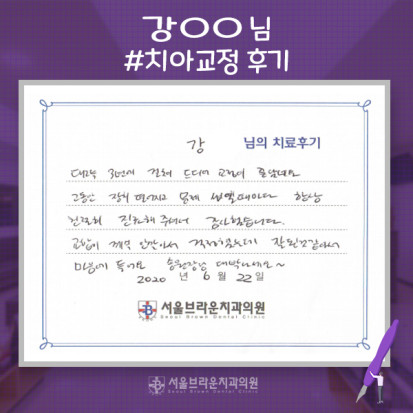 강○○ 님
#치아교정 후기
강 님의 치료후기
대략 3년에 걸쳐 드디어 교정이 끝났네요
그동안 장치 떨어지고 문제 생길때마다 항상
친절히 진료해 주셔서 감사했습니다.
교합이 계속 안맞아서 걱정했는데 잘된것같아서
마음에 들어요 송원장님 대박나세요~
2020 년 6 월 22 일
서울브라운치과의원
Seoul Brown Dental Clinic
서울브라운치과의원
Seoul Brown Dental Clinic